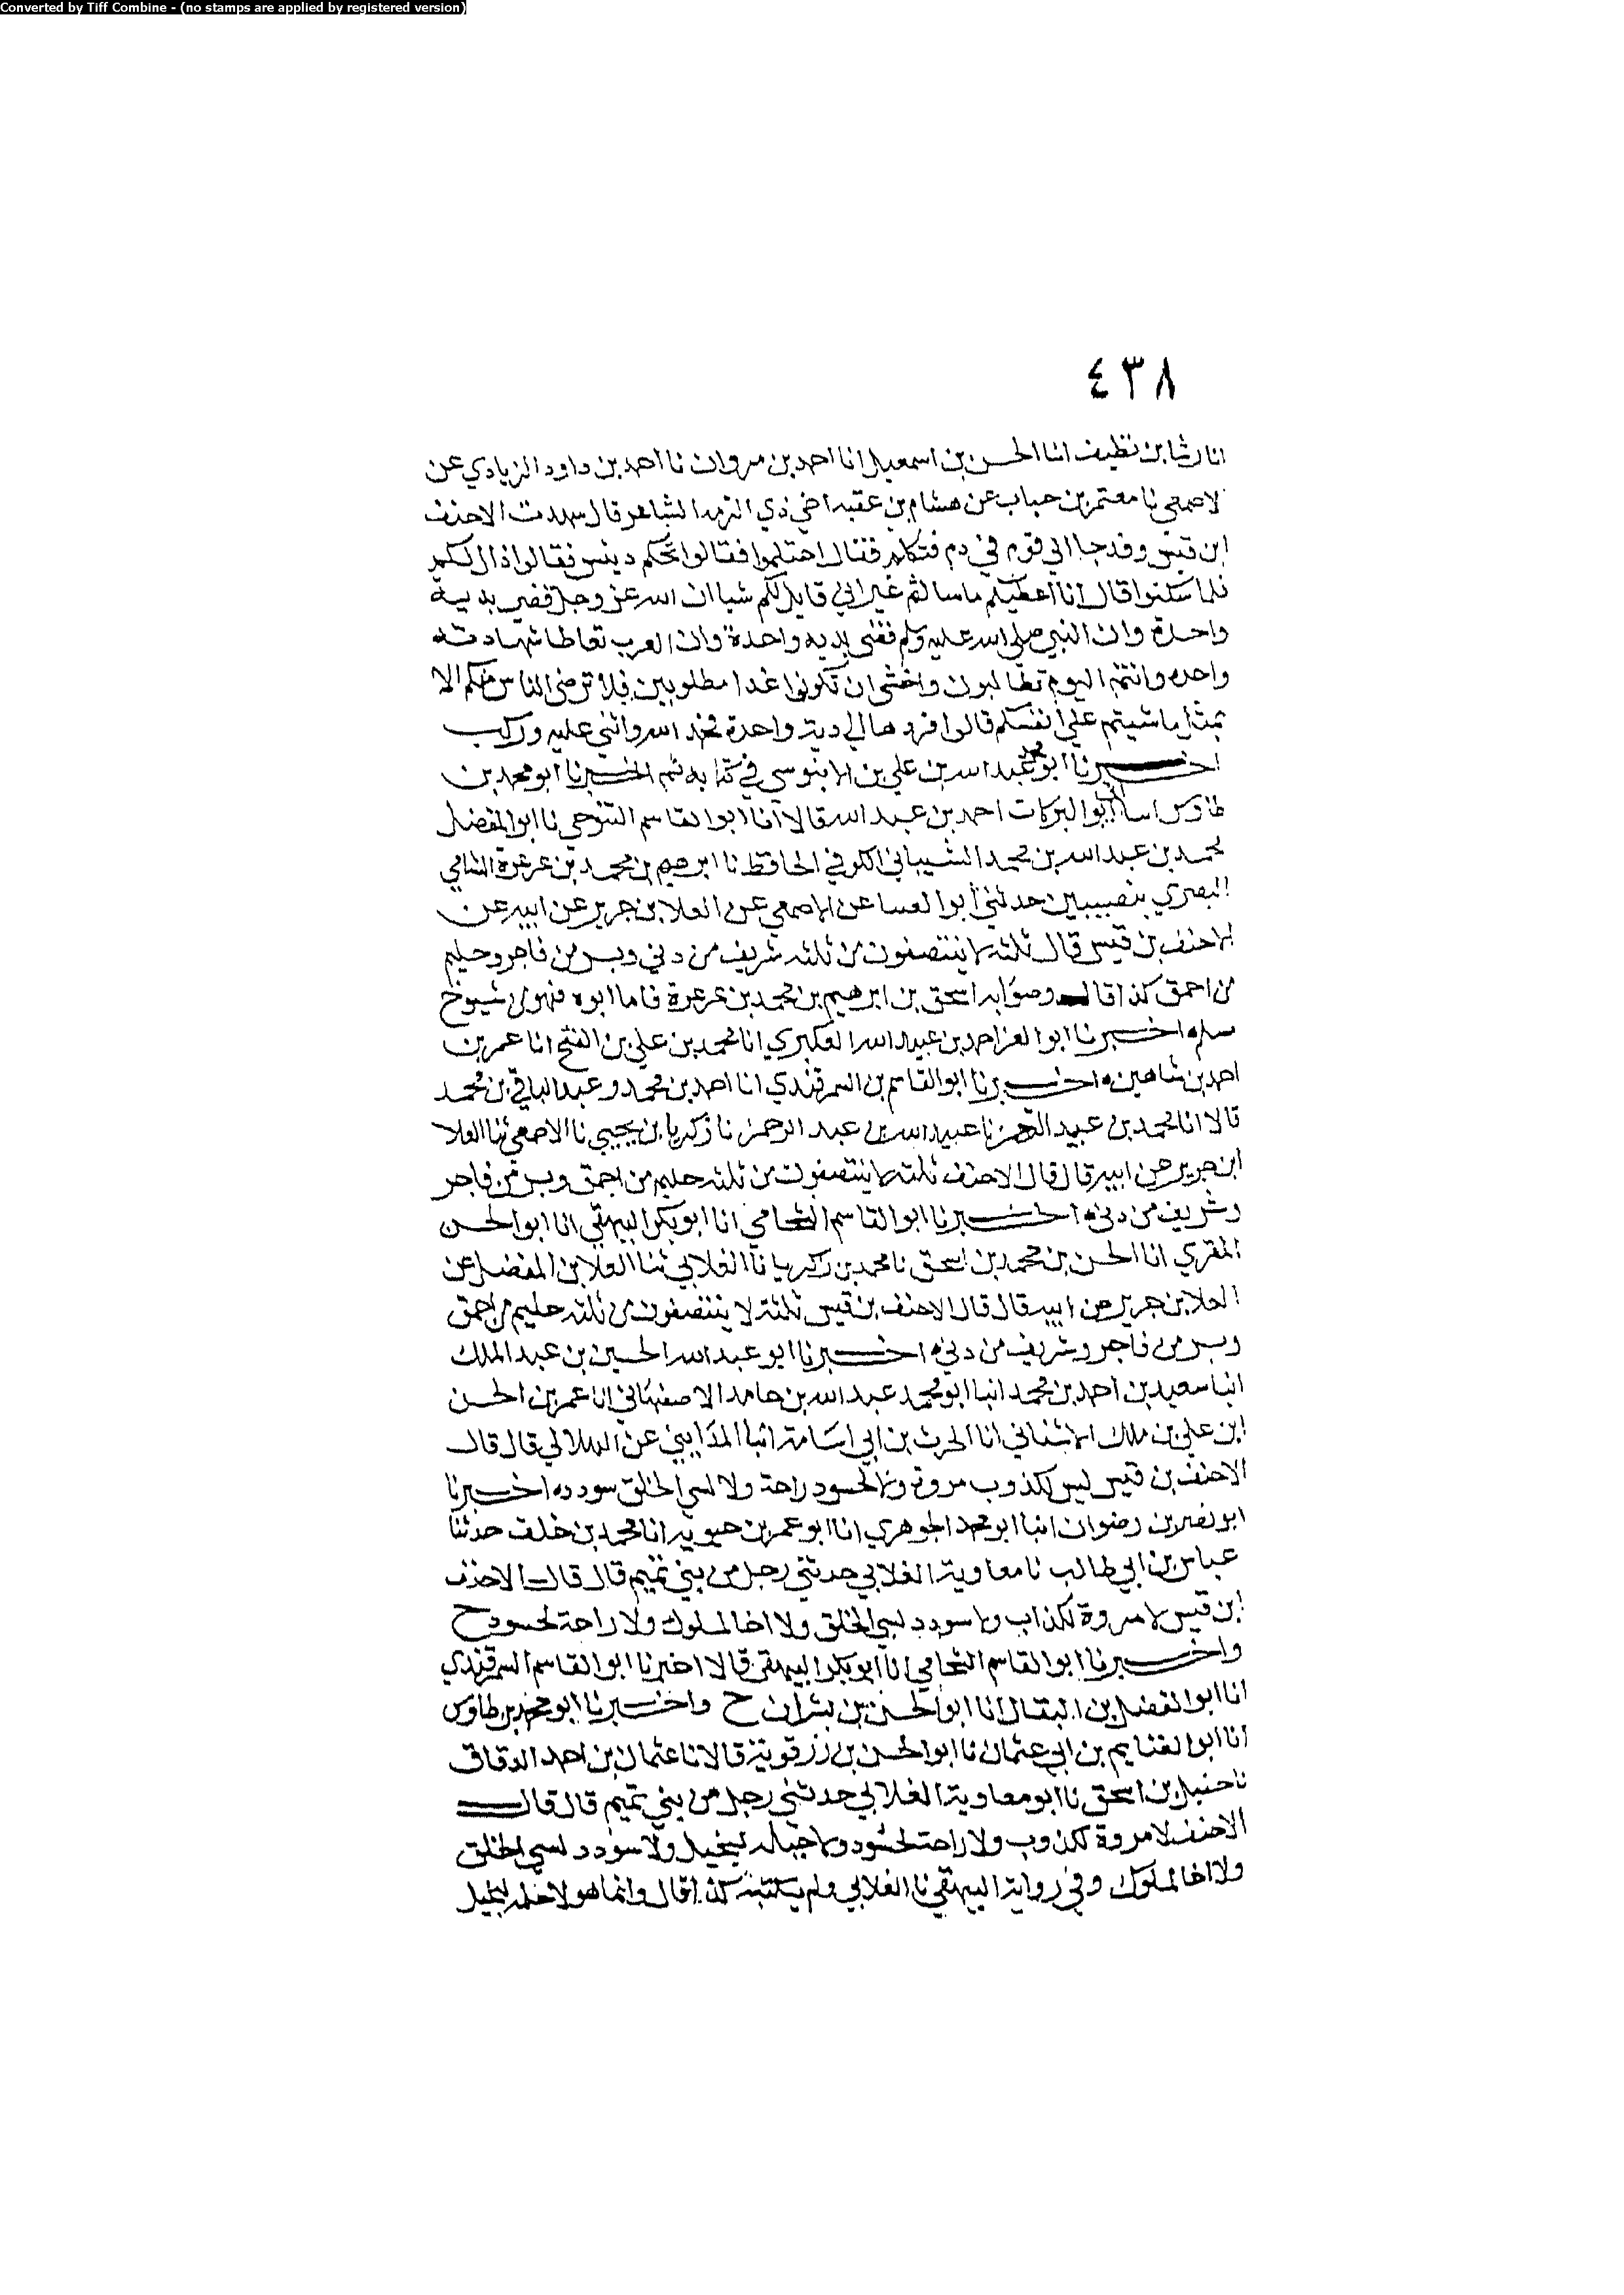 Converted by Tiff Combine - (no stamps are applied by registered version)
٤٣٨
انا رشا بن نظيف انا الحسن بن اسمعيل انا احمد بن مروان نا احمد بن داود الزيادي عن
الاصمعي نا معتمر بن حباب عن هشام بن عقبه اخي ذي الرمه الشاعر قال شهدت الاحنف
ابن قيس وقد جا الى قوم في دم فتكلم فقال احتكموا فقالوا نحكم ديتين فقالوا ذاك لكم
فلما سكتوا قال انا اعطيكم ما سالتم غير اني قايل لكم شيا ان الله عز وجل قضى بدية
واحدة وان النبي صلى الله عليه وسلم قضى بديه واحدة وان العرب تعاطا
واحده وانتم اليوم تطالبون واخشى ان تكونوا غدا مطلوبين فلا ترضى الناس منكم الا
بمثل ما شيتم على انفسكم قالوا فردها الى دية واحدة فحمد الله واثنى عليه وركب
اخبرنا ابو محمد عبد الله بن علي بن الابنوسي في كتابه ثم اخبرنا ابو محمد بن
طاوس ابو البركات احمد بن عبد الله قالا انا ابو القاسم التنوخي نا ابو المفضل
محمد بن عبد الله بن محمد الشيباني الكوفي الحافظ نا ابرهيم بن محمد بن عرعرة الشامي
البصري بنصيبين حدثني ابو العسا عن الاصمعي عن العلا بن جرير عن ابيه عن
الاحنف بن قيس قال ثلثه لا ينتصفون من ثلثه شريف من دني وبر من فاجر وحليم
من احمق كذا قال وصوابه اسحق بن ابرهيم بن محمد بن عرعرة فاما ابوه فهو من شيوخ
مسلم اخبرنا ابو العز احمد بن عبيد الله العكبري انا محمد بن علي بن الفتح انا عمر بن
احمد بن شاهين اخبرنا ابو القاسم بن السمرقندي انا احمد بن محمد وعبد الباقي بن محمد
قالا انا محمد بن عبد الرحمن نا عبيد الله بن عبد الرحمن نا زكريا بن يحيى نا الاصمعي ثنا العلا
ابن جرير عن ابيه قال قال الاحنف ثلثه لا ينتصفون من ثلثه حليم من احمق وبر من فاجر
وشريف من دني اخبرنا ابو القاسم الشحامي انا ابو بكر البيهقي انا ابو الحسن
المقري انا الحسن بن محمد بن اسحق نا محمد بن زكريا نا الغلابي ثنا العلا بن المفضل عن
العلا بن جرير عن ابيه قال قال الاحنف بن قيس ثلثة لا ينتصفون من ثلثه حليم من احمق
وبر من فاجر وشريف من دني اخبرنا ابو عبد الله الحسين بن عبد الملك
انبا سعيد بن احمد بن محمد انبا ابو محمد عبد الله بن حامد الاصفهاني انا عمر بن الحسن
ابن علي بن ملك الاشناني انا الحرث بن ابي اسامة انبا المدايني عن الهلالي قال قال
الاحنف بن قيس ليس لكذوب مروة ولا لحسود راحة ولا لسي الخلق سودد اخبرنا
ابو نصر بن رضوان انبا ابو محمد الجوهري انا ابو عمر بن حيويه انا محمد بن خلف حدثنا
عباس بن ابي طالب نا معاوية الغلابي حدثني رجل من بني تميم قال قال الاحنف
ابن قيس لا مروة لكذاب ولا سودد لسي الخلق ولا اخا لملوك ولا راحة لحسود ح
واخبرنا ابو القاسم الشحامي انا ابو بكر البيهقي قالا اخبرنا ابو القاسم السمرقندي
انا ابو الفضل بن البقال انا ابو الحسين بن بشران ح واخبرنا ابو محمد بن طاوس
انا ابو الغنايم بن ابي عثمان نا ابو الحسن بن رزقوية قالا نا عثمان بن احمد الدقاق
نا حنبل بن اسحق نا ابو معاوية الغلابي حدثني رجل من بني تميم قال قال
الاحنف لا مروة لكذوب ولا راحة لحسود ولا لبخيل ولا سودد لسي الخلق
ولا اخا لملوك وفي رواية البيهقي نا الغلابي ولم يكتبه كذا قال وانما هو لا لبخيل